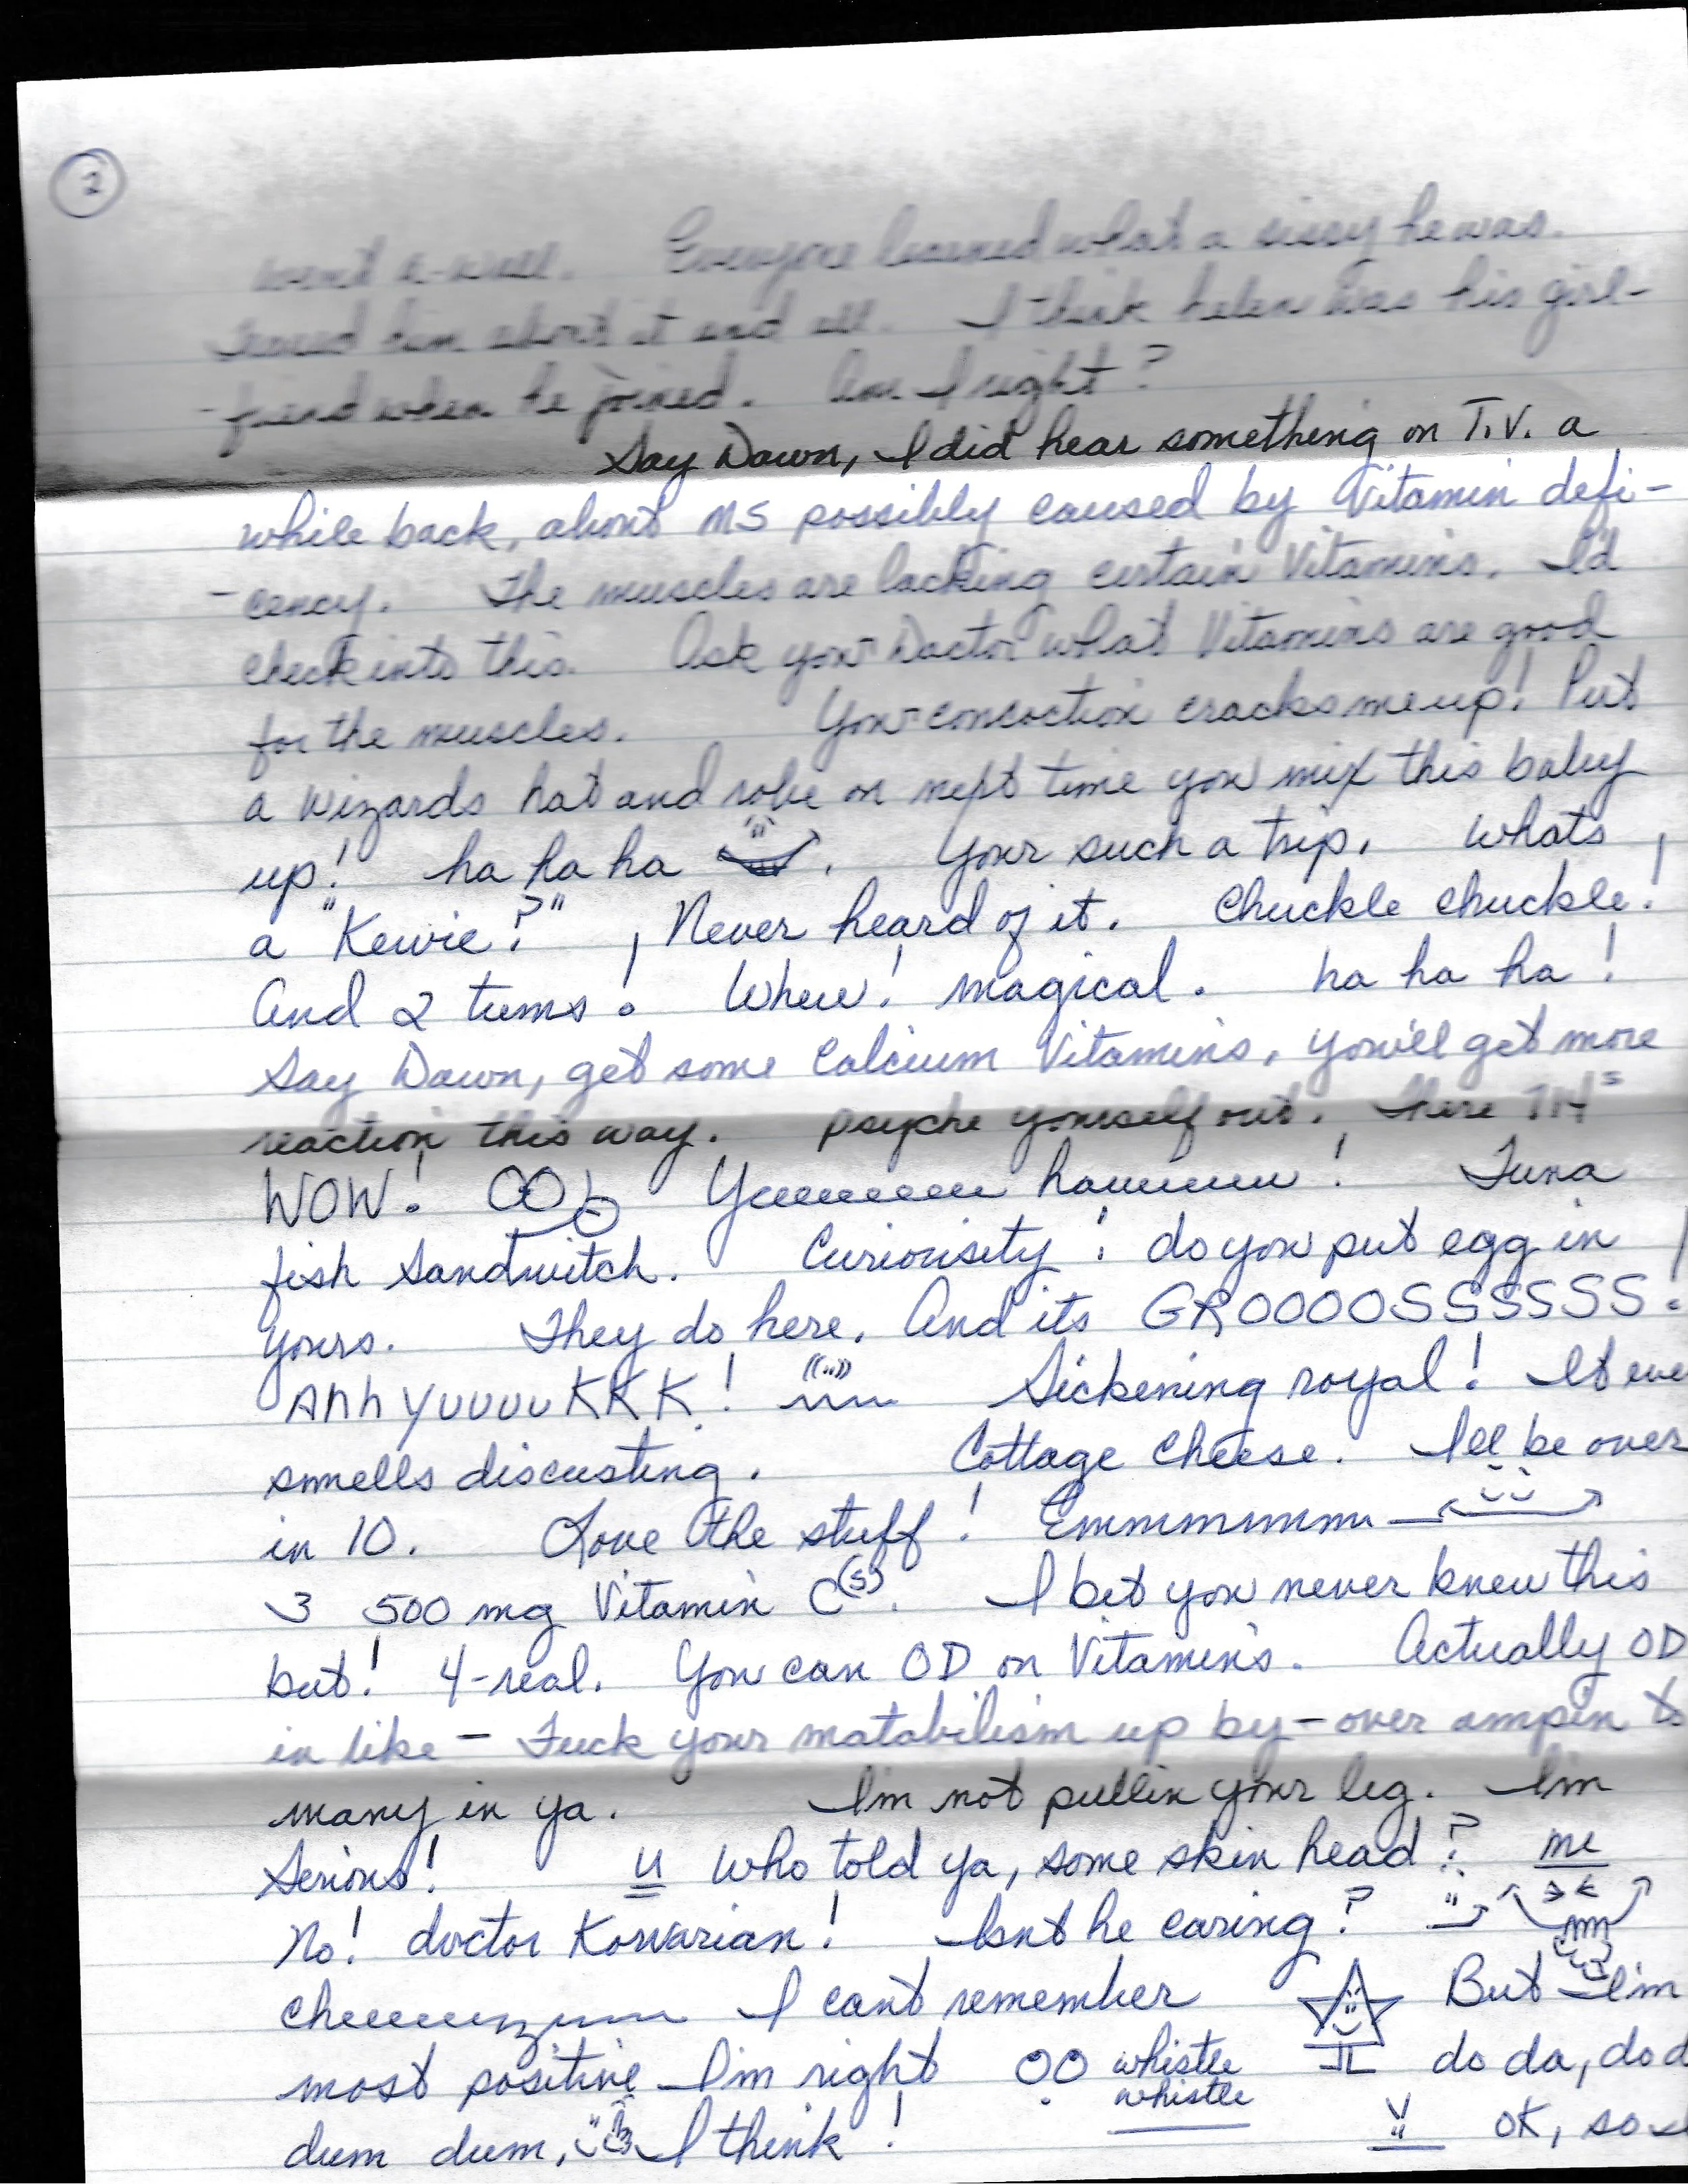 2
went a-wall. Everyone learned what a sissy he was.
him about it and all. I think helen was his girl-
-friend when he joined. Am I right?
Say Dawn, I did hear something on T.V. a
while back, about MS possibly caused by Vitamin defi-
-cency. The muscles are lacking certain Vitamins. I'd
check into this. Ask your Doctor what Vitamins are good
for the muscles. Your concoction cracks me up! Put
a wizards hat and robe on next time you mix this baby
up! ha ha ha . Your such a trip. Whats
a "Kewie?" , Never heard of it. Chuckle chuckle!
And 2 tums! Whew! magical. ha ha ha!
Say Dawn, get some Calcium Vitamins, you'll get more
reaction this way. psyche yourself out. There
WOW! Yeeeeeeeee hauuuuuu! Tuna
fish Sandwitch. Curiousity! do you put egg in
yours. They do here. And its GROOOOSSSSSS!
Ahh yuuuuKKK! Sickening royal! It eve
smells discusting. Cottage cheese. I'll be over
in 10. Love the stuff! Emmmmmmm
3 500 mg Vitamin C(s). I bet you never knew this
but! 4-real. You can OD on Vitamins. Actually OD
in like - Fuck your matabilism up by - over ampin to
many in ya. I'm not pullin your leg. I'm
Serious! u Who told ya, some skin head? me
No! doctor Korvarian! Isnt he caring?
I cant remember But I'm
most positive I'm right whistle do da, do d
whistle
dum dum, I think! OK, so